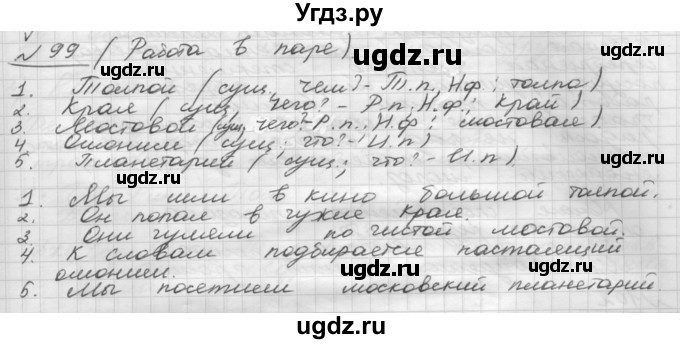 Угдз.ру
№99 (Работа в паре)
1. Толпой (сущ, чем? - Т.п, Н.ф: толпа)
2. Края (сущ, чего? - Р.п, Н.ф: край)
3. Мостовой (сущ, чего? - Р.п., Н.ф; мостовая).
4. Омоним (сущ; что? - И.п)
5. Планетарий (сущ; что? - И.п)
1. Мы шли в кино большой толпой.
2. Он попал в чужие края.
3. Они гуляли по чистой мостовой.
4. К словам подбирается настоящий
омоним.
5. Мы посетили московский планетарий.
ugdz.ru ugdz.ru ugdz.ru
ugdz.ru ugdz.ru ugdz.ru
ugdz.ru ugdz.ru ugdz.ru
ugdz.ru ugdz.ru ugdz.ru
ugdz.ru ugdz.ru ugdz.ru